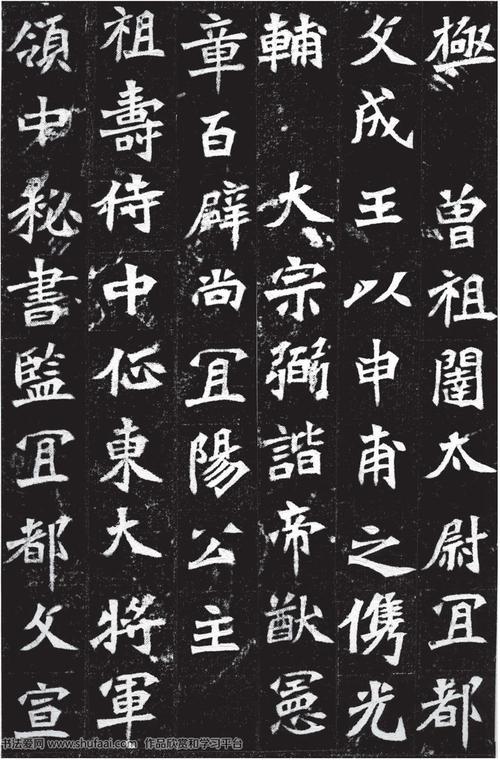 極 曽祖闥太尉冝都
文成王以申甫之儁光
輔 大宗弼諧帝猷憲
章百辟尚冝陽公主
祖壽侍中征東大將軍
領中秘書監冝都文宣
书法爱网 www.shufaai.com 作品欣赏和学习平台